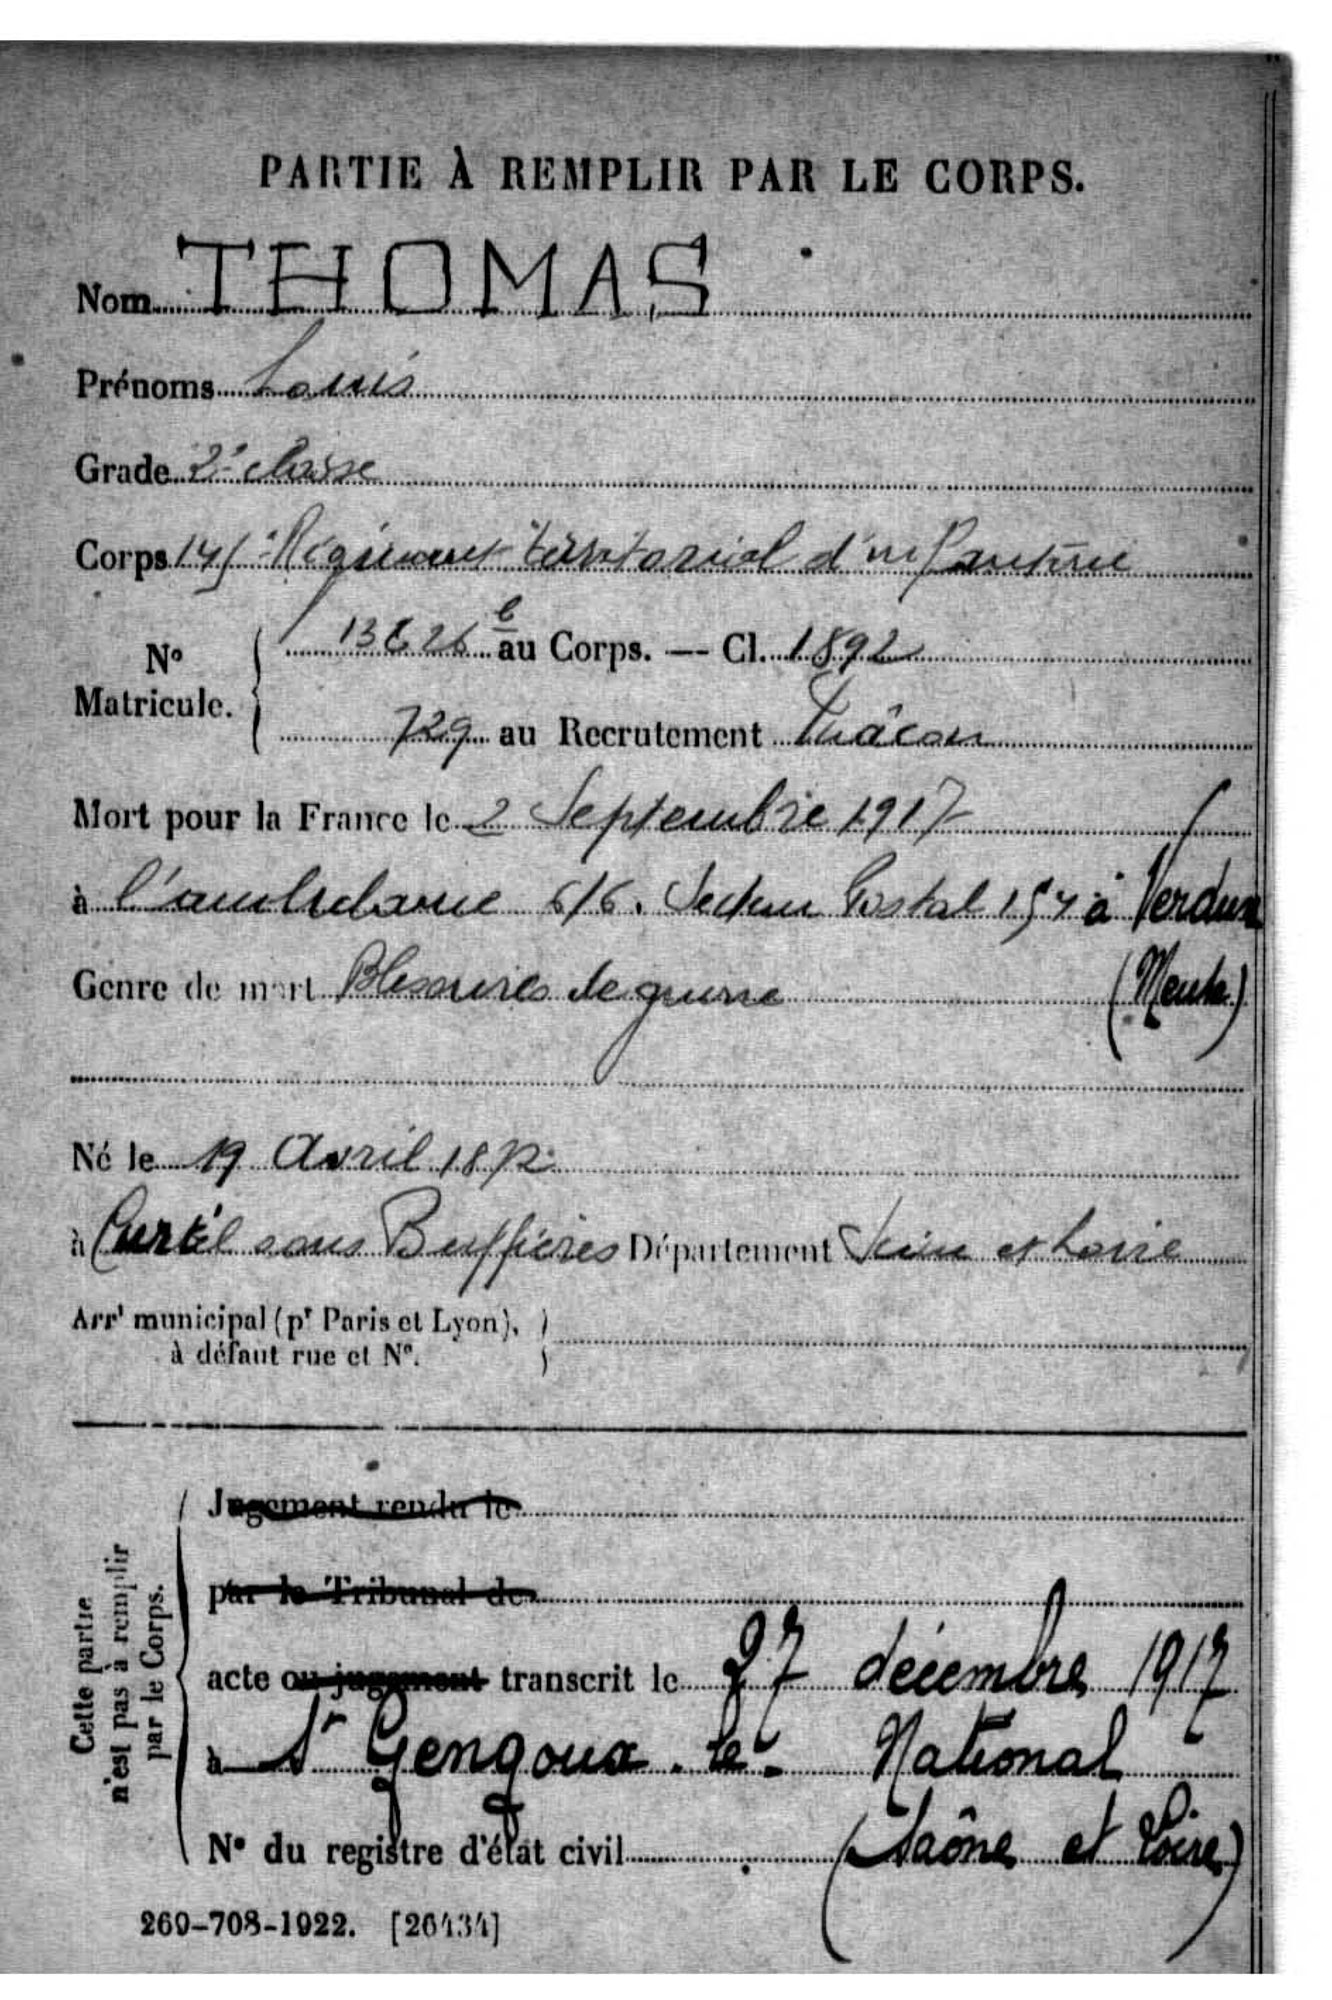 PARTIE À REMPLIR PAR LE CORPS.
Nom THOMAS
Prénoms Louis
Grade 2e classe
Corps 145e Régiment territorial d'infanterie
No Matricule. au Corps. — Cl. 1892
729 au Recrutement Mâcon
Mort pour la France le 2 Septembre 1917
à l'ambulance 6/6. Secteur Postal 154 à Verdun
Genre de mort Blessures de guerre (Meuse)
Né le 19 Avril 1872
à Curtil sous Buffières Département Saône et Loire
Arrt municipal (pr Paris et Lyon),
à défaut rue et No.
Cette partie
n'est pas à remplir
par le Corps.
Jugement rendu le
par le Tribunal de
acte ou jugement transcrit le 27 décembre 1917
à St Gengoux-le-National
No du registre d'état civil (Saône et Loire)
260-708-1922. [26434]